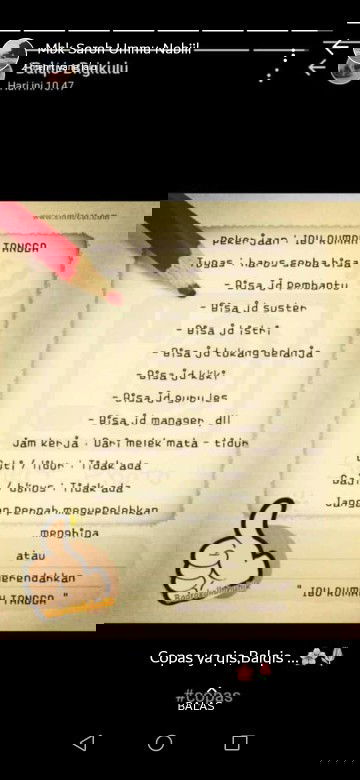 Mbk Saroh Ummu Nabil'
Hari ini 10.47
Pekerjaan : IBU RUMAH TANGGA
Tugas : harus serba bisa
- Bisa jd pembantu
- Bisa jd suster
- Bisa jd istri
- Bisa jd tukang belanja
- Bisa jd koki
- Bisa jd guru les
- Bisa jd manager, dll
Jam kerja : Dari melek mata - tidur
Cuti / libur : Tidak ada
/ : Tidak ada
Jangan pernah menyepelehkan
menghina
atau
merendahkan
" IBU RUMAH TANGGA "
Copas ya qis Balqis ...
#copas
BALAS